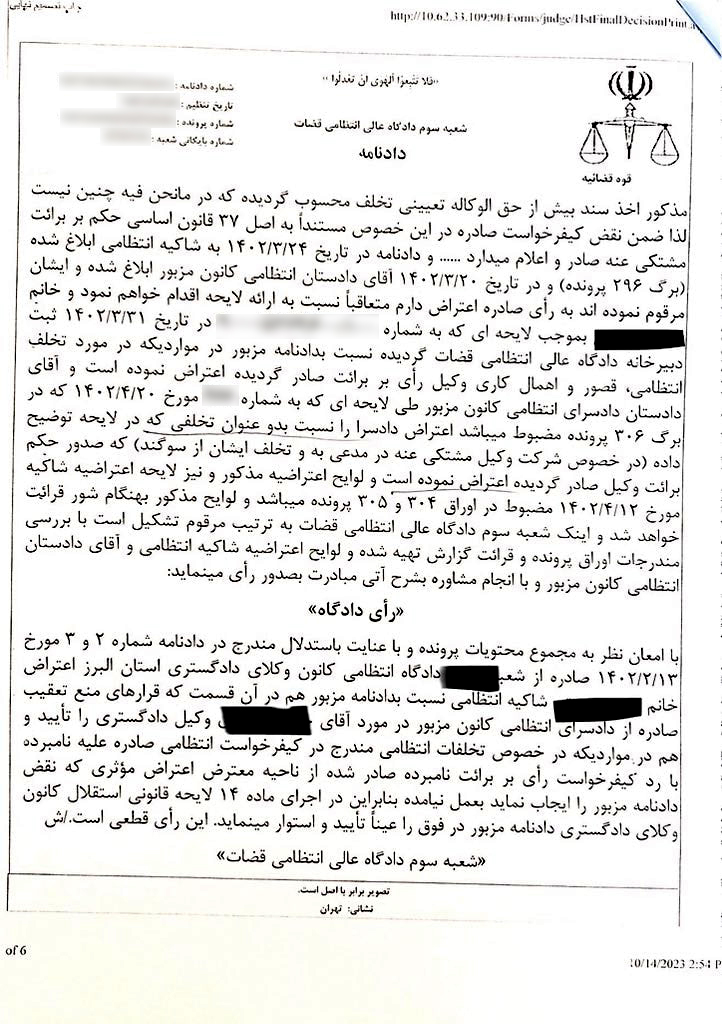 چاپ تصمیم نهایی
http://10.62.33.109:90/Forms/judge/HstFinalDecisionPrint.a
«فلا تتبعوا الهوی ان تعدلوا»
شماره دادنامه :
تاریخ تنظیم :
شماره پرونده :
شماره بایگانی شعبه :
شعبه سوم دادگاه عالی انتظامی قضات
دادنامه
قوه قضائیه
مذکور اخذ سند بیش از حق الوکاله تعیینی تخلف محسوب گردیده که در مانحن فیه چنین نیست
لذا ضمن نقض کیفرخواست صادره در این خصوص مستنداً به اصل ۳۷ قانون اساسی حکم بر برائت
مشتکی عنه صادر و اعلام میدارد ...... و دادنامه در تاریخ ۱۴۰۲/۳/۲۴ به شاکیه انتظامی ابلاغ شده
(برگ ۲۹۶ پرونده) و در تاریخ ۱۴۰۲/۳/۲۰ آقای دادستان انتظامی کانون مزبور ابلاغ شده و ایشان
مرقوم نموده اند به رأی صادره اعتراض دارم متعاقباً نسبت به ارائه لایحه اقدام خواهم نمود و خانم
بموجب لایحه ای که به شماره در تاریخ ۱۴۰۲/۳/۳۱ ثبت
دبیرخانه دادگاه عالی انتظامی قضات گردیده نسبت بدادنامه مزبور در مواردیکه در مورد تخلف
انتظامی، قصور و اهمال کاری وکیل رأی بر برائت صادر گردیده اعتراض نموده است و آقای
دادستان دادسرای انتظامی کانون مزبور طی لایحه ای که به شماره مورخ ۱۴۰۲/۴/۲۰ که در
برگ ۳۰۶ پرونده مضبوط میباشد اعتراض دادسرا را نسبت بدو عنوان تخلفی که در لایحه توضیح
داده (در خصوص شرکت وکیل مشتکی عنه در مدعی به و تخلف ایشان از سوگند) که صدور حکم
برائت وکیل صادر گردیده اعتراض نموده است و لوایح اعتراضیه مذکور و نیز لایحه اعتراضیه شاکیه
مورخ ۱۴۰۲/۴/۱۲ مضبوط در اوراق ۳۰۴ و ۳۰۵ پرونده میباشد و لوایح مذکور بهنگام شور قرائت
خواهد شد و اینک شعبه سوم دادگاه عالی انتظامی قضات به ترتیب مرقوم تشکیل است با بررسی
مندرجات اوراق پرونده و قرائت گزارش تهیه شده و لوایح اعتراضیه شاکیه انتظامی و آقای دادستان
انتظامی کانون مزبور و با انجام مشاوره بشرح آتی مبادرت بصدور رأی مینماید:
«رأی دادگاه»
با امعان نظر به مجموع محتویات پرونده و با عنایت باستدلال مندرج در دادنامه شماره ۲ و ۳ مورخ
۱۴۰۲/۲/۱۳ صادره از شعبه دادگاه انتظامی کانون وکلای دادگستری استان البرز اعتراض
خانم شاکیه انتظامی نسبت بدادنامه مزبور هم در آن قسمت که قرارهای منع تعقیب
صادره از دادسرای انتظامی کانون مزبور در مورد آقای وکیل دادگستری را تأیید و
هم در مواردیکه در خصوص تخلفات انتظامی مندرج در کیفرخواست انتظامی صادره علیه نامبرده
با رد کیفرخواست رأی بر برائت نامبرده صادر شده از ناحیه معترض اعتراض مؤثری که نقض
دادنامه مزبور را ایجاب نماید بعمل نیامده بنابراین در اجرای ماده ۱۴ لایحه قانونی استقلال کانون
وکلای دادگستری دادنامه مزبور در فوق را عیناً تأیید و استوار مینماید. این رأی قطعی است./ش
«شعبه سوم دادگاه عالی انتظامی قضات»
تصویر برابر با اصل است.
نشانی: تهران
of 6
10/14/2023 2:54 P